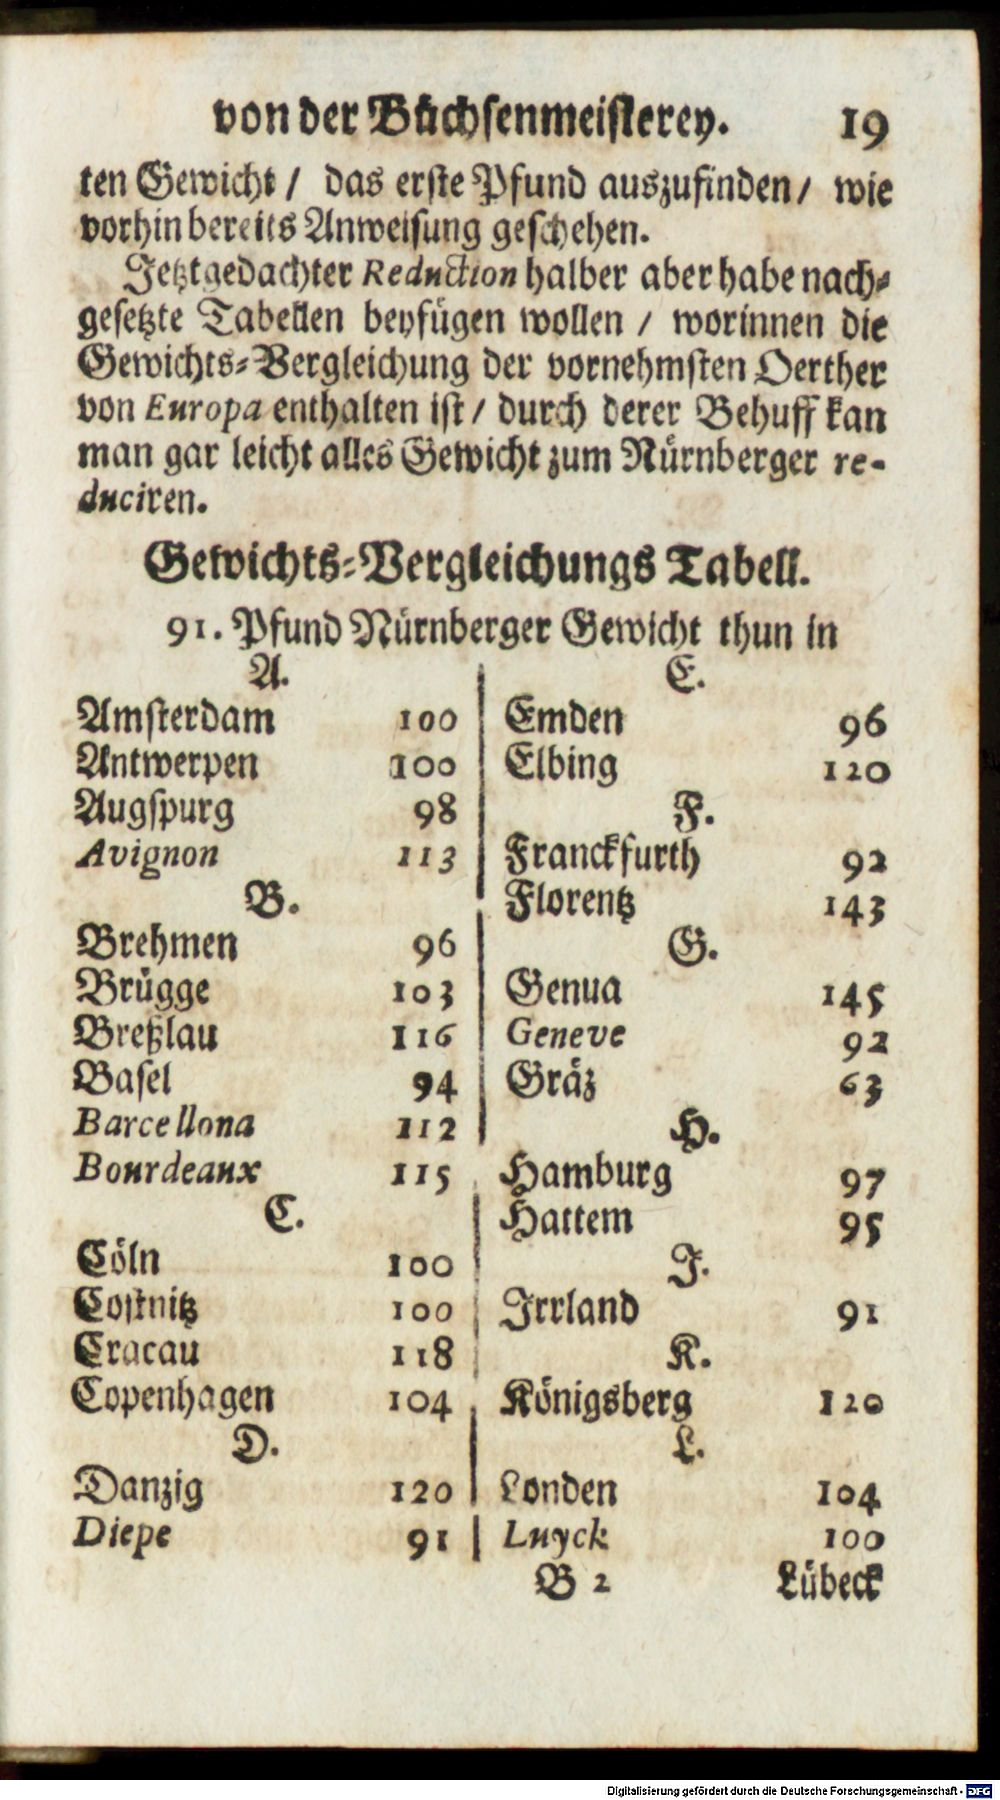 von der Büchsenmeisterey. 19
ten Gewicht / das erste Pfund auszufinden / wie
vorhin bereits Anweisung geschehen.
Jetztgedachter Reduction halber aber habe nach-
gesetzte Tabellen beyfügen wollen / worinnen die
Gewichts-Vergleichung der vornehmsten Oerther
von Europa enthalten ist / durch derer Behuff kan
man gar leicht alles Gewicht zum Nürnberger re-
duciren.
Gewichts-Vergleichungs Tabell.
91. Pfund Nürnberger Gewicht thun in
A.
Amsterdam 100
Antwerpen 100
Augspurg 98
Avignon 113
B.
Brehmen 96
Brügge 103
Breßlau 116
Basel 94
Barcellona 112
Bourdeaux 115
C.
Cöln 100
Costnitz 100
Cracau 118
Copenhagen 104
D.
Danzig 120
Diepe 91
E.
Emden 96
Elbing 120
F.
Franckfurth 92
Florentz 143
G.
Genua 145
Geneve 92
Gräz 63
H.
Hamburg 97
Hattem 95
I.
Irrland 91
K.
Königsberg 120
L.
Londen 104
Luyck 100
B 2 Lübeck
Digitalisierung gefördert durch die Deutsche Forschungsgemeinschaft - DFG